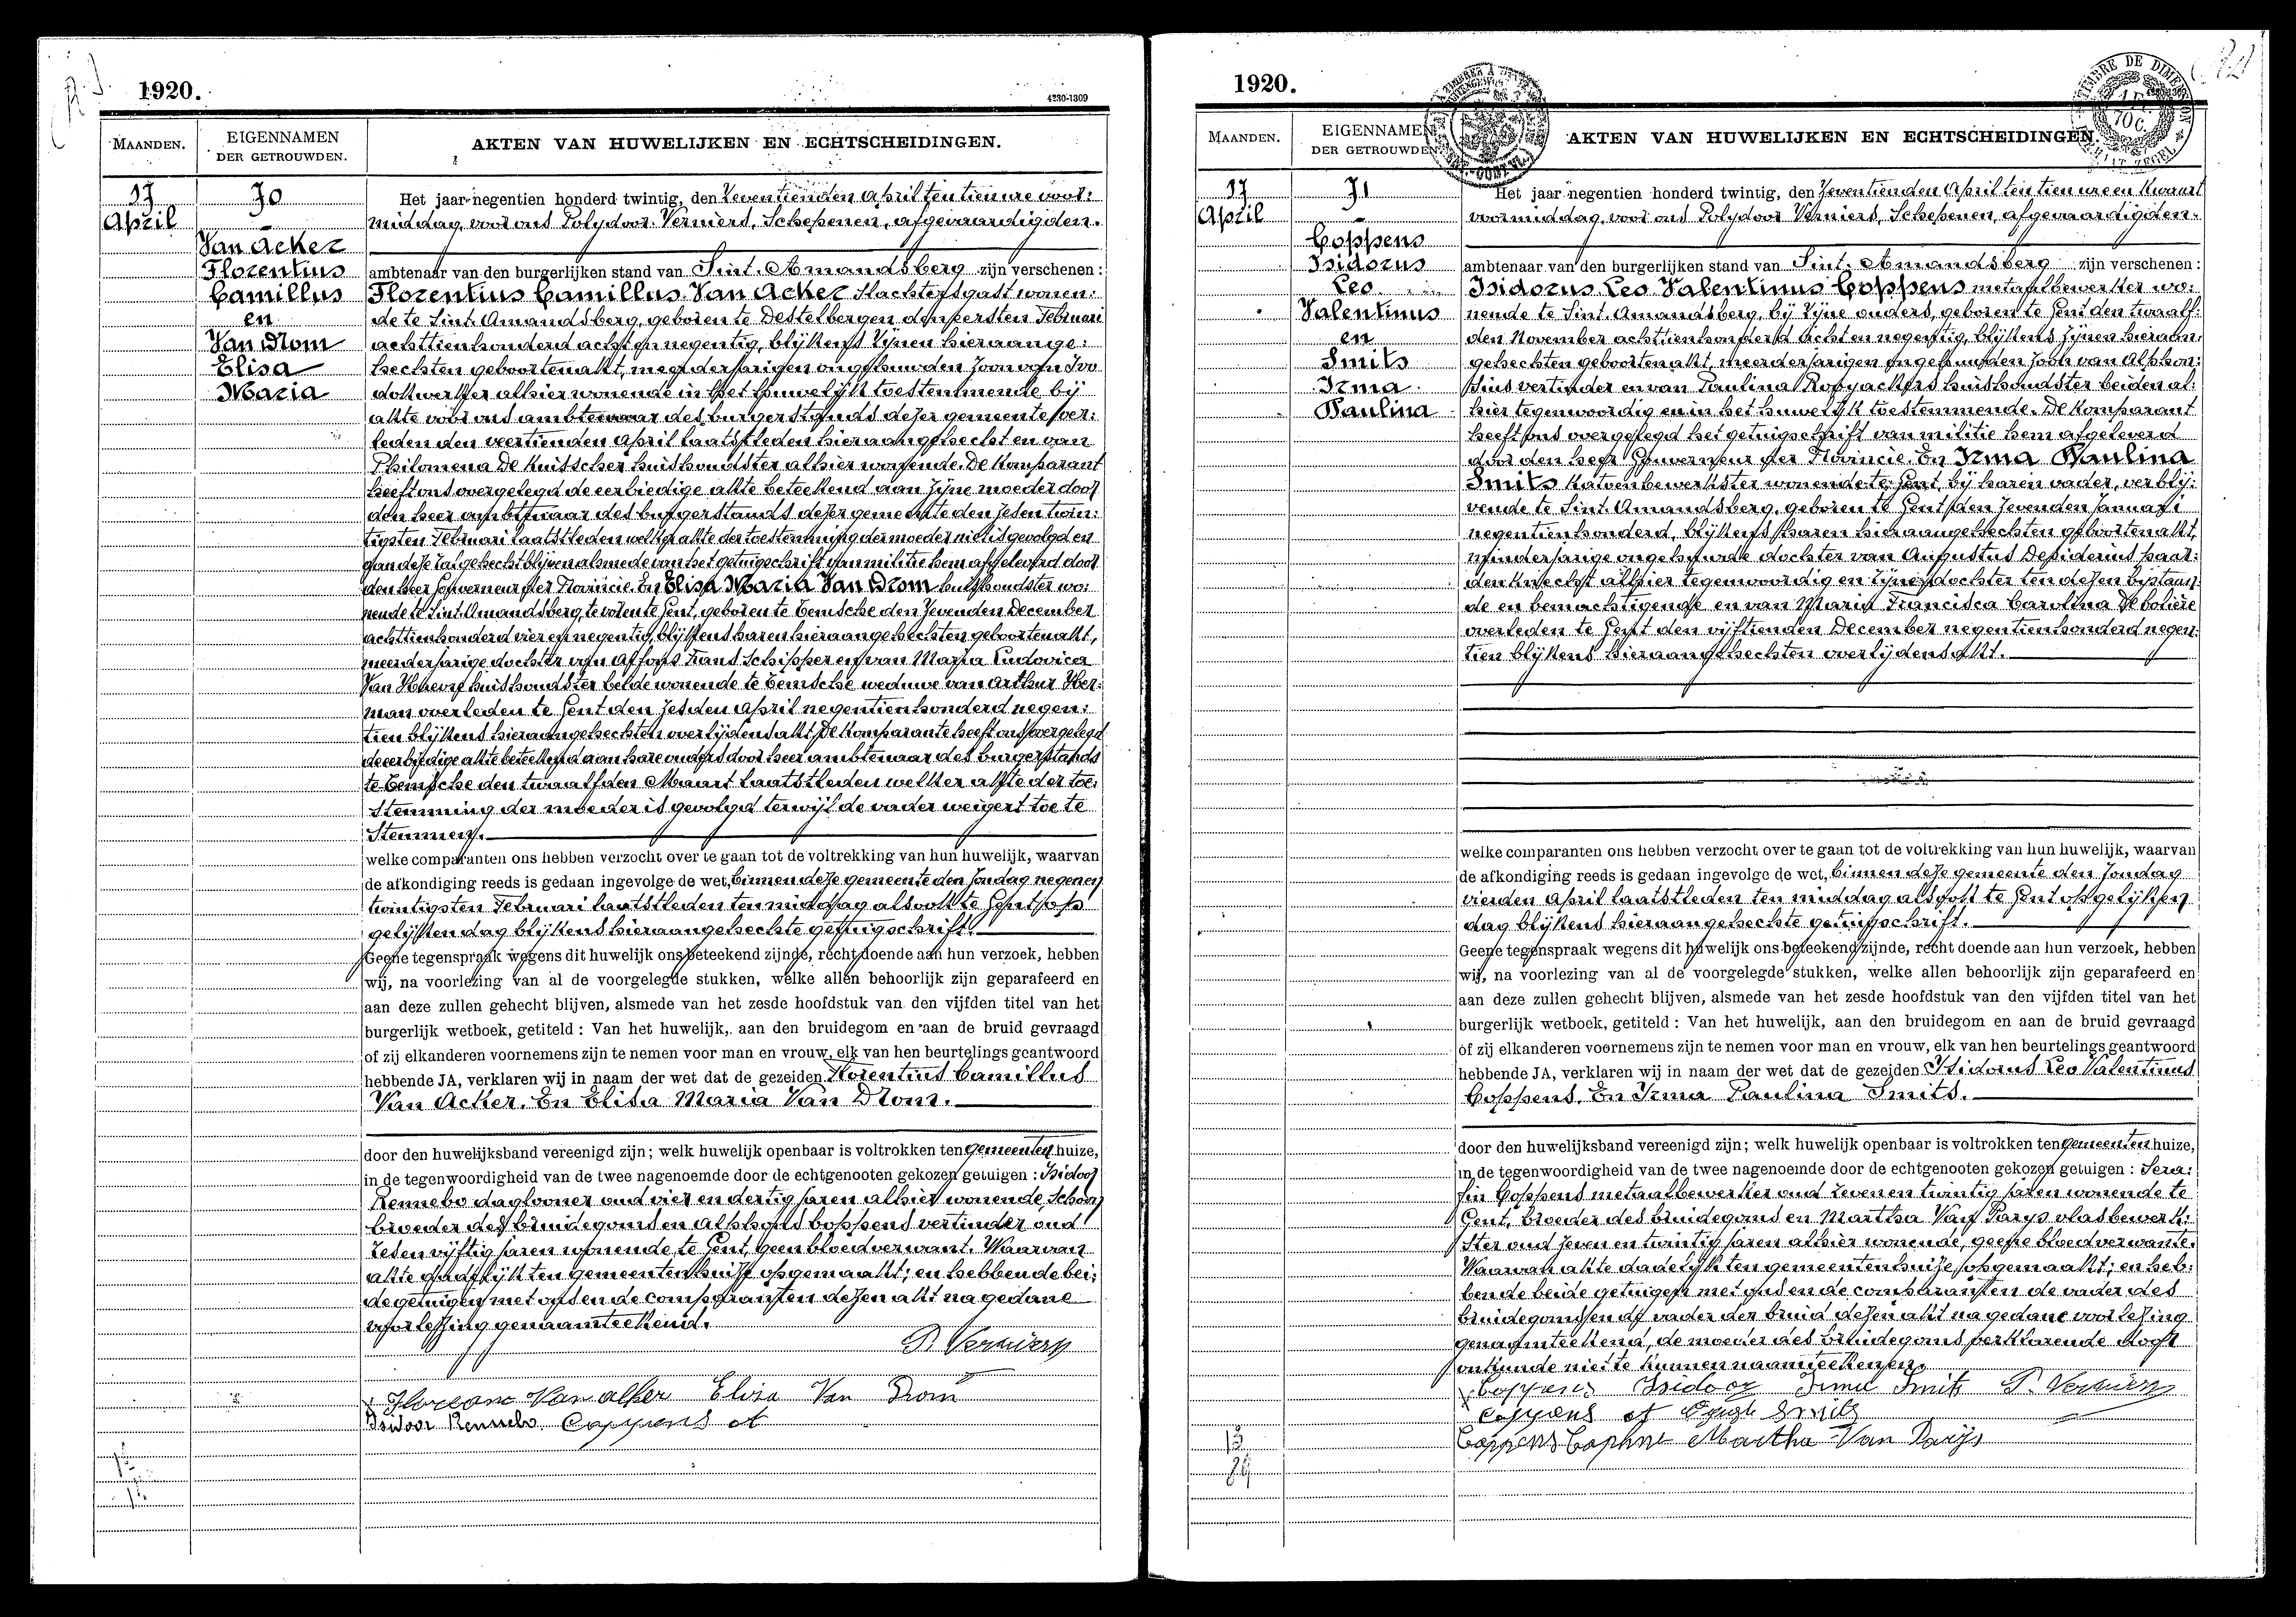 1920.
4230-1309
MAANDEN.
EIGENNAMEN
DER GETROUWDEN.
AKTEN VAN HUWELIJKEN EN ECHTSCHEIDINGEN.
17
April
70
-
Van Acker
Florentius
Camillus
en
Van Drom
Elisa
Maria
Het jaar negentien honderd twintig, den Zeventienden April ten tien ure voor:
middag, voor ons Polydoor Verniers, Schepenen, afgevaardigden.
ambtenaar van den burgerlijken stand van Sint. Amandsberg zijn verschenen:
Florentius Camillus Van Acker slachtersgast wonen:
de te Sint. Amandsberg, geboren te Destelbergen den eersten Februari
achttienhonderd acht en negentig, blijkens zijnen hieraange:
hechten geboortenakt, meerderjarigen ongehuwden zoon van Ivo
dokwerker alhier wonende in het huwelijk toestemmende bij
akte voor ons ambtenaar des burgerstands dezer gemeente ver:
leden den veertienden April laatstleden hieraangehecht en van
Philomena De Kuisscher huishoudster alhier wonende. De komparant
heeft ons overgelegd de eerbiedige akte beteekend aan zijne moeder door
den heer ambtenaar des burgerstands dezer gemeente den zesen twin:
tigsten Februari laatstleden welke akte der toestemming der moeder niet is gevolgd en
aan deze zal gehecht blijven alsmede van het getuigschrift van militie hem afgeleverd door
den heer Gouverneur der Provincie. En Elisa Maria Van Drom huishoudster wo:
nende te Sint. Amandsberg, te voren te Gent, geboren te Temsche den zevenden December
achttienhonderd vier en negentig, blijkens haren hieraangehechten geboortenakt,
meerderjarige dochter van Alfons Frans Schipper en van Maria Ludovica
Van Haevre huishoudster beide wonende te Temsche weduwe van Arthur Her:
man overleden te Gent den zesden April negentienhonderd negen:
tien blijkens hieraangehechten overlijdensakt. De komparante heeft ons overgelegd
de eerbiedige akte beteekend aan hare ouders door heer ambtenaar des burgerstands
te Temsche den twaalfden Maart laatstleden welker akte der toe:
stemming der moeder is gevolgd terwijl de vader weigert toe te
stemmen.
welke comparanten ons hebben verzocht over te gaan tot de voltrekking van hun huwelijk, waarvan
de afkondiging reeds is gedaan ingevolge de wet, binnen deze gemeente den Zondag negenen
twintigsten Februari laatstleden ten middag alsook te Gent op
gelijken dag blijkens hieraangehechte getuigschrift.
Geene tegenspraak wegens dit huwelijk ons beteekend zijnde, recht doende aan hun verzoek, hebben
wij, na voorlezing van al de voorgelegde stukken, welke allen behoorlijk zijn geparafeerd en
aan deze zullen gehecht blijven, alsmede van het zesde hoofdstuk van den vijfden titel van het
burgerlijk wetboek, getiteld : Van het huwelijk, aan den bruidegom en aan de bruid gevraagd
of zij elkanderen voornemens zijn te nemen voor man en vrouw, elk van hen beurtelings geantwoord
hebbende JA, verklaren wij in naam der wet dat de gezeiden Florentius Camillus
Van Acker. En Elisa Maria Van Drom.
door den huwelijksband vereenigd zijn; welk huwelijk openbaar is voltrokken ten gemeenten huize,
in de tegenwoordigheid van de twee nagenoemde door de echtgenooten gekozen getuigen : Isidoor
Rennebo daglooner oud vier en dertig jaren alhier wonende, schoon
broeder des bruidegoms en Alphons Coppens vertinder oud
zesen vijftig jaren wonende te Gent, geen bloedverwant. Waarvan
akte dadelijk ten gemeentenhuize opgemaakt; en hebbende bei:
de getuigen met ons en de comparanten dezen akt na gedane
voorlezing genaamteekend.
P. Verniers
Florean Van Akker Elisa Van Drom
Isidoor Rennebo Coppens A
1920.
TIMBRE DE DIMENSION
1 FR.
70 C.
MAANDEN.
EIGENNAMEN
DER GETROUWDEN.
AKTEN VAN HUWELIJKEN EN ECHTSCHEIDINGEN.
17
April
71
-
Coppens
Isidorus
Leo
Valentinus
en
Smits
Irma
Paulina
Het jaar negentien honderd twintig, den Zeventienden April ten tien ure en kwart
voormiddag, voor ons Polydoor Verniers, Schepenen, afgevaardigden.
ambtenaar van den burgerlijken stand van Sint. Amandsberg zijn verschenen:
Isidorus Leo Valentinus Coppens metaalbewerker wo:
nende te Sint. Amandsberg, bij zijne ouders, geboren te Gent den twaalf:
den November achttienhonderd acht en negentig, blijkens zijnen hieraan:
gehechten geboortenakt, meerderjarigen ongehuwden zoon van Alphon:
sius vertinder en van Paulina Rooyackers huishoudster beiden al:
hier tegenwoordig en in het huwelijk toestemmende. De komparant
heeft ons overgelegd het getuigschrift van militie hem afgeleverd
door den heer Gouverneur der Provincie. En Irma Paulina
Smits katoenbewerkster wonende te Gent, bij haren vader, verblij:
vende te Sint. Amandsberg, geboren te Gent den zevenden Januari
negentienhonderd, blijkens haren hieraangehechten geboortenakt,
minderjarige ongehuwde dochter van Augustus Desiderius paar:
denknecht alhier tegenwoordig en zijner dochter ten dezen bijstaan:
de en bemachtigende en van Maria Francisca Carolina De Bolière
overleden te Gent den vijftienden December negentienhonderd negen:
tien blijkens hieraangehechten overlijdensakt.
welke comparanten ons hebben verzocht over te gaan tot de voltrekking van hun huwelijk, waarvan
de afkondiging reeds is gedaan ingevolge de wet, binnen deze gemeente den Zondag
vierden April laatstleden ten middag alsook te Gent op gelijken
dag blijkens hieraangehechte getuigschrift.
Geene tegenspraak wegens dit huwelijk ons beteekend zijnde, recht doende aan hun verzoek, hebben
wij, na voorlezing van al de voorgelegde stukken, welke allen behoorlijk zijn geparafeerd en
aan deze zullen gehecht blijven, alsmede van het zesde hoofdstuk van den vijfden titel van het
burgerlijk wetboek, getiteld : Van het huwelijk, aan den bruidegom en aan de bruid gevraagd
of zij elkanderen voornemens zijn te nemen voor man en vrouw, elk van hen beurtelings geantwoord
hebbende JA, verklaren wij in naam der wet dat de gezeiden Isidorus Leo Valentinus
Coppens. En Irma Paulina Smits.
door den huwelijksband vereenigd zijn; welk huwelijk openbaar is voltrokken ten gemeenten huize,
in de tegenwoordigheid van de twee nagenoemde door de echtgenooten gekozen getuigen : Sera:
fin Coppens metaalbewerker oud zeven en twintig jaren wonende te
Gent, broeder des bruidegoms en Martha Van Parys vlasbewerk:
ster oud zeven en twintig jaren alhier wonende, geene bloedverwante.
Waarvan akte dadelijk ten gemeentenhuize opgemaakt; en heb:
bende beide getuigen met ons en de comparanten de vader des
bruidegoms en de vader der bruid dezen akt na gedane voorlezing
genaamteekend, de moeder des bruidegoms verklarende door
onkunde niet te kunnen naamteekenen.
Coppens Isidoor Irma Smits P. Verniers
Coppens A Smits
Coppens Martha Van Parijs
13
89